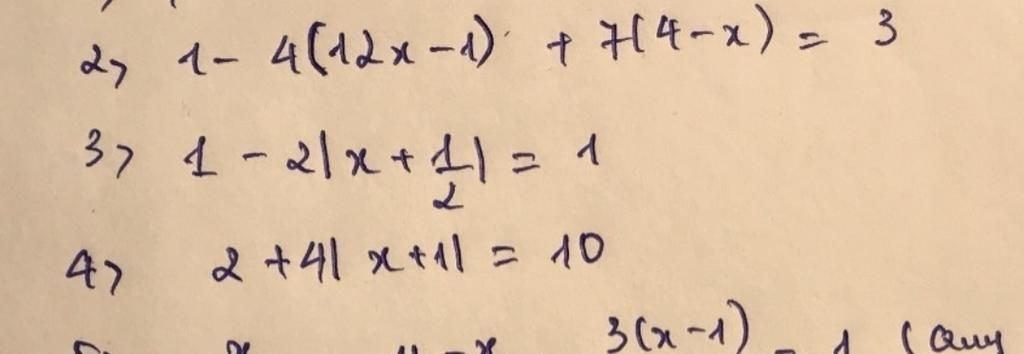 2> 1 - 4(12x - 1) + 7(4 - x) = 3
3> 1 - 2|x + 1/2| = 1
4> 2 + 4|x + 1| = 10
3(x - 1)